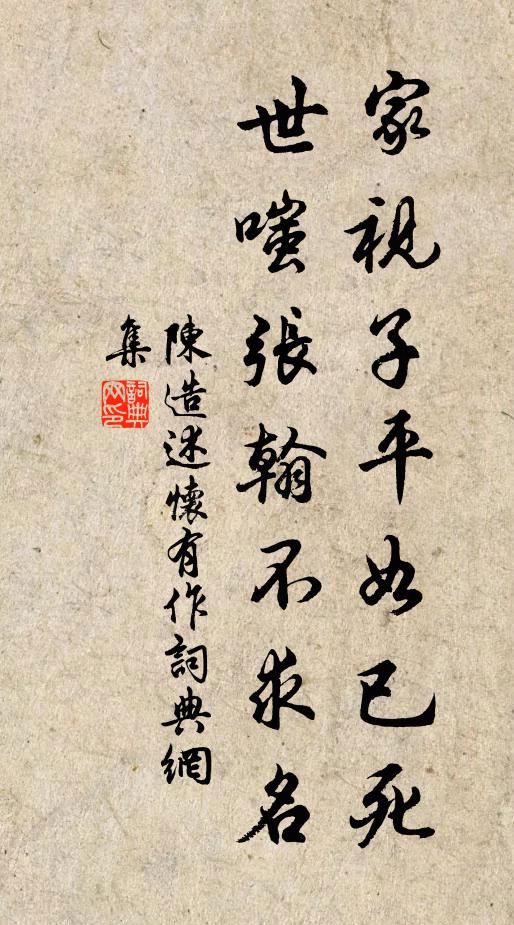 家視子平如已死
世嗤張翰不求名
陳造述懷有作詞典網
集
詞典網印